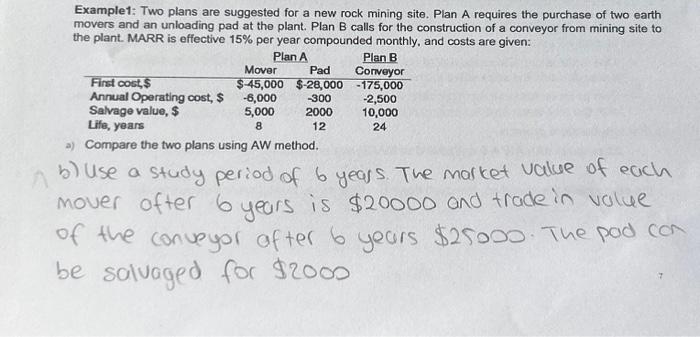 Example1: Two plans are suggested for a new rock mining site. Plan A requires the purchase of two earth
movers and an unloading pad at the plant. Plan B calls for the construction of a conveyor from mining site to
the plant. MARR is effective 15% per year compounded monthly, and costs are given:
Plan A Plan B
Mover Pad Conveyor
First cost,$ $-45,000 $-28,000 -175,000
Annual Operating cost, $ -6,000 -300 -2,500
Salvage value, $ 5,000 2000 10,000
Life, years 8 12 24
a) Compare the two plans using AW method.
b) Use a study period of 6 years. The market value of each
mover after 6 years is $20000 and trade in value
of the conveyor after 6 years $25000. The pad can
be salvaged for $2000
7